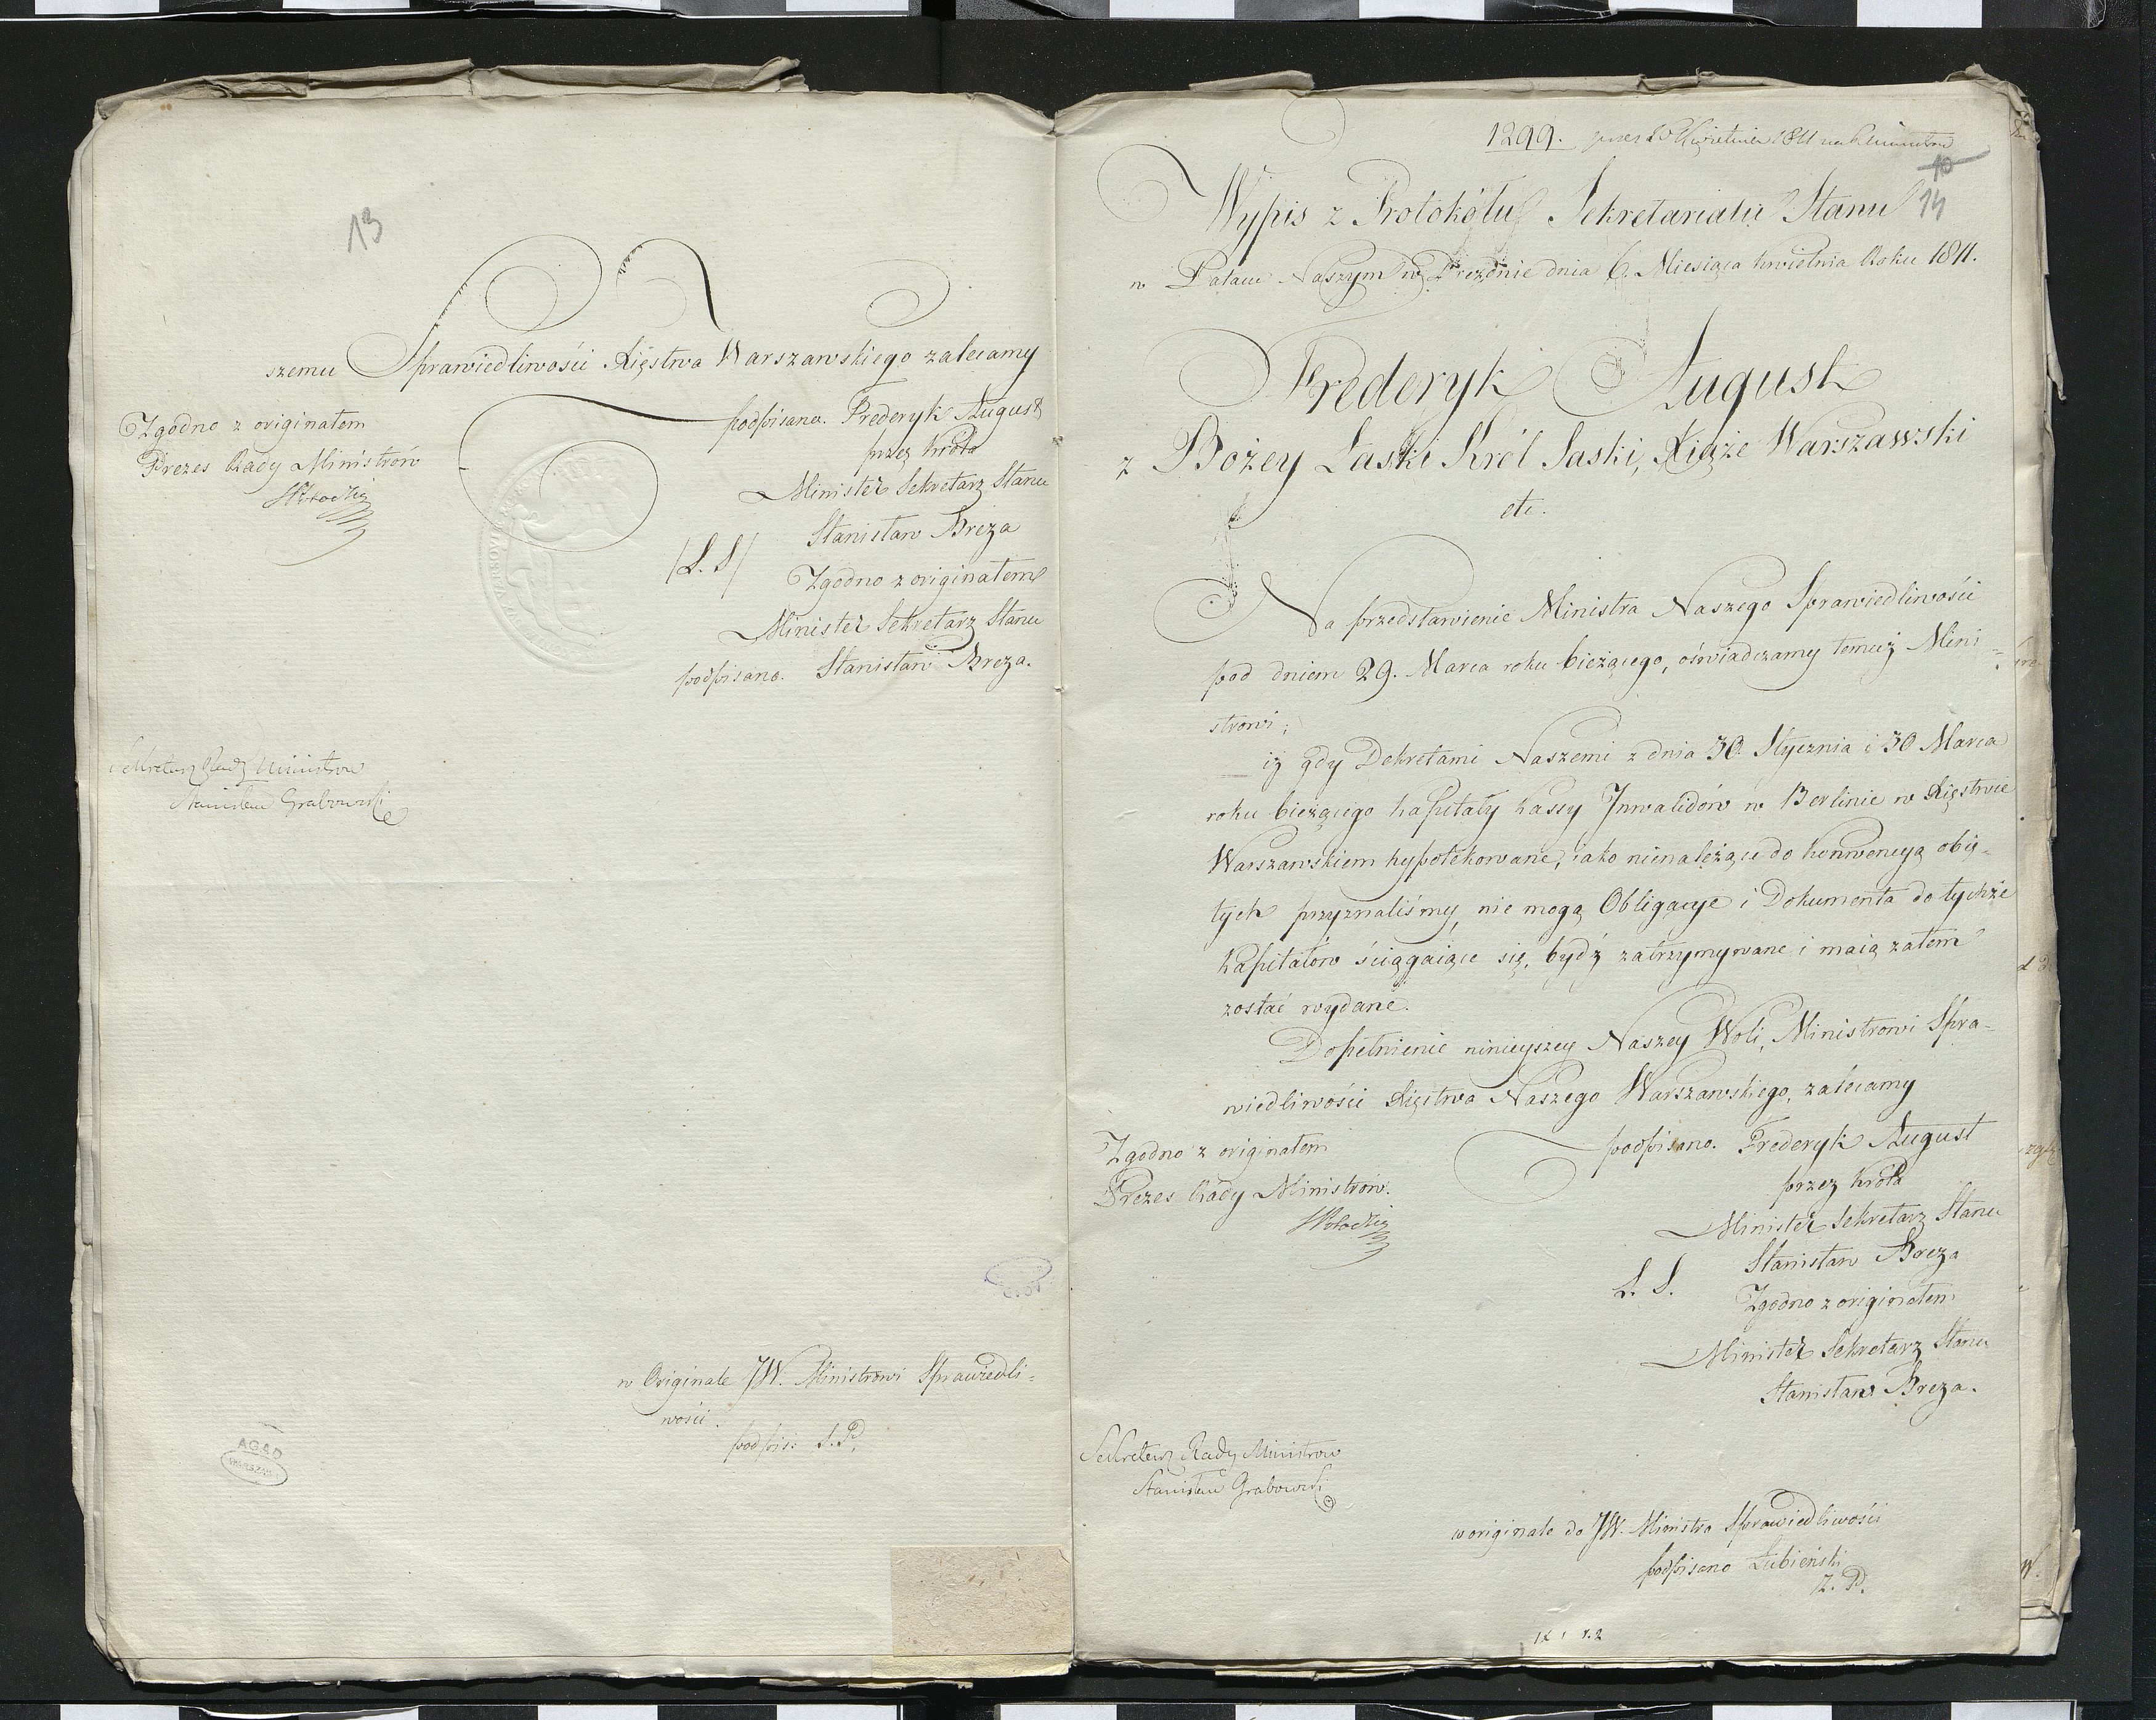 13
szemu Sprawiedliwości Xięstwa Warszawskiego zalecamy
podpisano. Frederyk August
przez Króla
Minister Sekretarz Stanu
Stanisław Breza
/L. S/
Zgodno z originałem
Minister Sekretarz Stanu
podpisano. Stanisław Breza.
Zgodno z originałem
Prezes Rady Ministrów
Sekretarz Rady Ministrow
Stanisław Grabowski
w Originale JW. Ministrowi Sprawiedli-
wości.
podpis: L. P.
AGAD
WARSZAWA
1299.
10
14
Wypis z Protokółu Sekretariatu Stanu
w Pałacu Naszym w Dreźnie dnia 6. Miesiąca Kwietnia Roku 1811.
Frederyk August
z Bożey Łaski Król Saski, Xiąże Warszawski
etc.
Na przedstawienie Ministra Naszego Sprawiedliwości
pod dniem 29. Marca roku bieżącego, oświadczamy temuż Mini-
strowi;
iż gdy Dekretami Naszemi z dnia 30. Stycznia i 30 Marca
roku bieżącego kapitały kassy Jnwalidów w Berlinie w Xięstwie
Warszawskiem hypotekowane, iako nienależące do konwencyą obię-
tych przyznaliśmy, nie mogą Obligacye i Dokumenta do tychże
kapitałów ściągaiące się, bydź zatrzymywane i maią zatem
zostać wydane.
Dopełnienie ninieyszey Naszey Woli, Ministrowi Spra-
wiedliwości Xięstwa Naszego Warszawskiego, zalecamy
podpisano. Frederyk August
przez Króla
Minister Sekretarz Stanu
Stanisław Breza
L. S.
Zgodno z originałem
Minister Sekretarz Stanu
Stanisław Breza.
Zgodno z originałem
Prezes Rady Ministrów.
Sekretarz Rady Ministrow
Stanisław Grabowski
w originale do JW. Ministra Sprawiedliwości
podpisano Łubieński